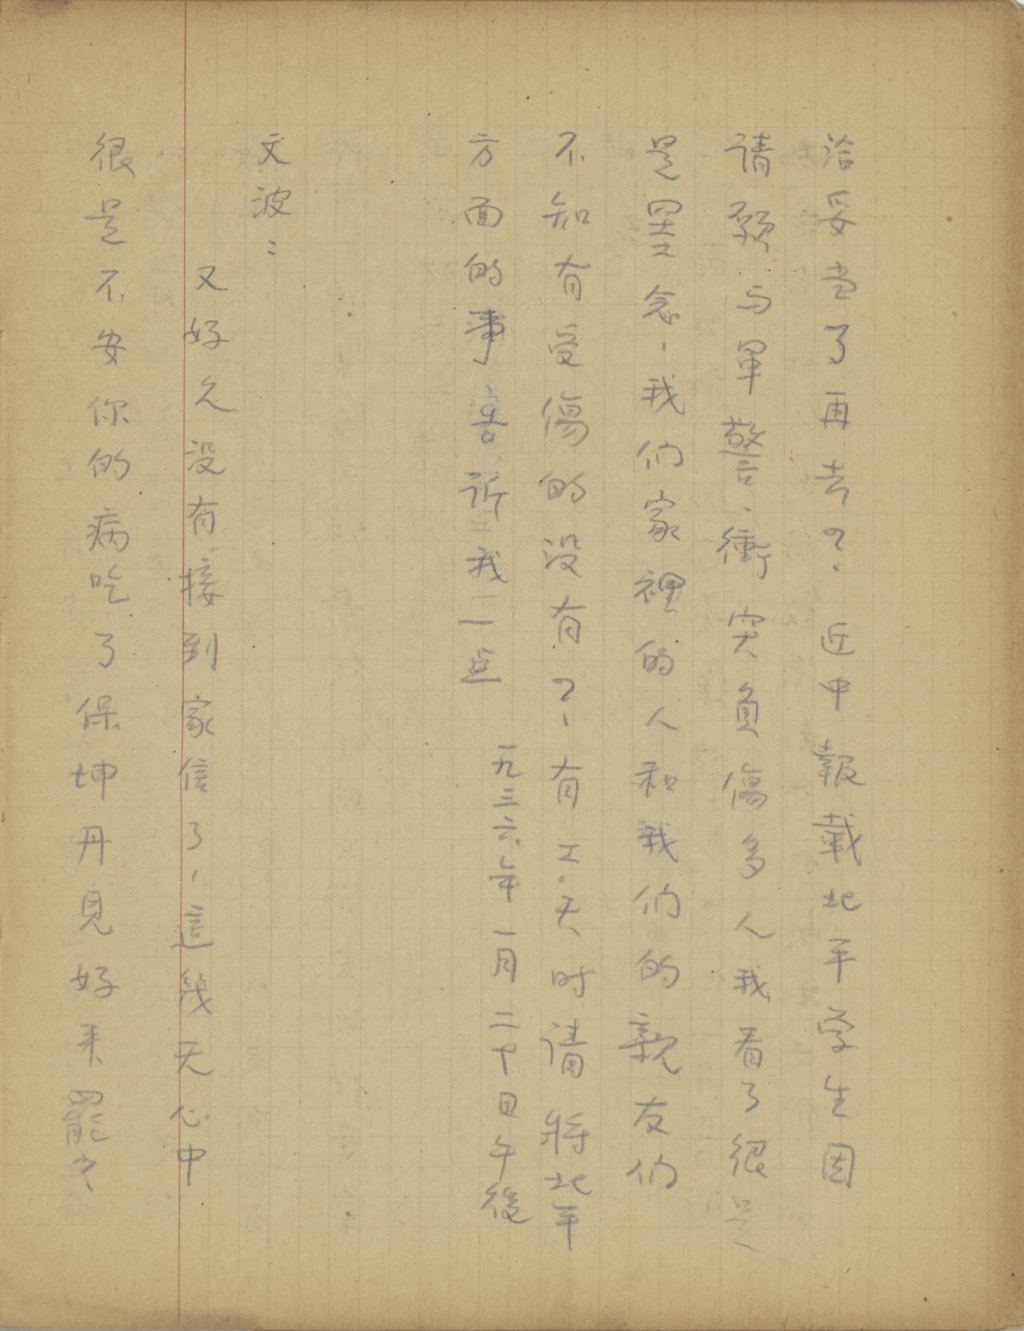 洽妥当了再去?.近中報載北平学生因
请願与軍警、衝突負傷多人我看了很是
是罣念、我们家裡的人和我们的親友们
不知有受傷的没有?、有工夫时請將北平
方面的事告訴我一点
一九三六年一月二十日午後
文波:
又好久没有接到家信了、這幾天心中
很是不安你的病吃了保坤丹見好来罷?